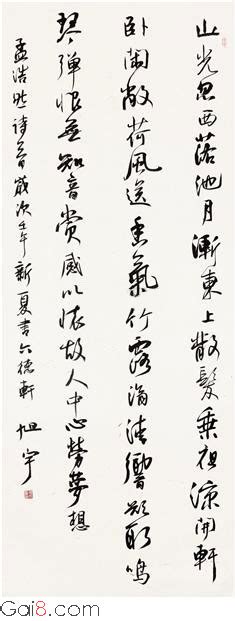 山光忽西落池月漸東上散髮乘夜涼開軒
卧閑敞荷風送香氣竹露滴清響欲取鳴
琴彈恨無知音賞感此懷故人中心勞夢想
孟浩然詩一首歲次壬午新夏書六德軒 旭宇
Gai8.com